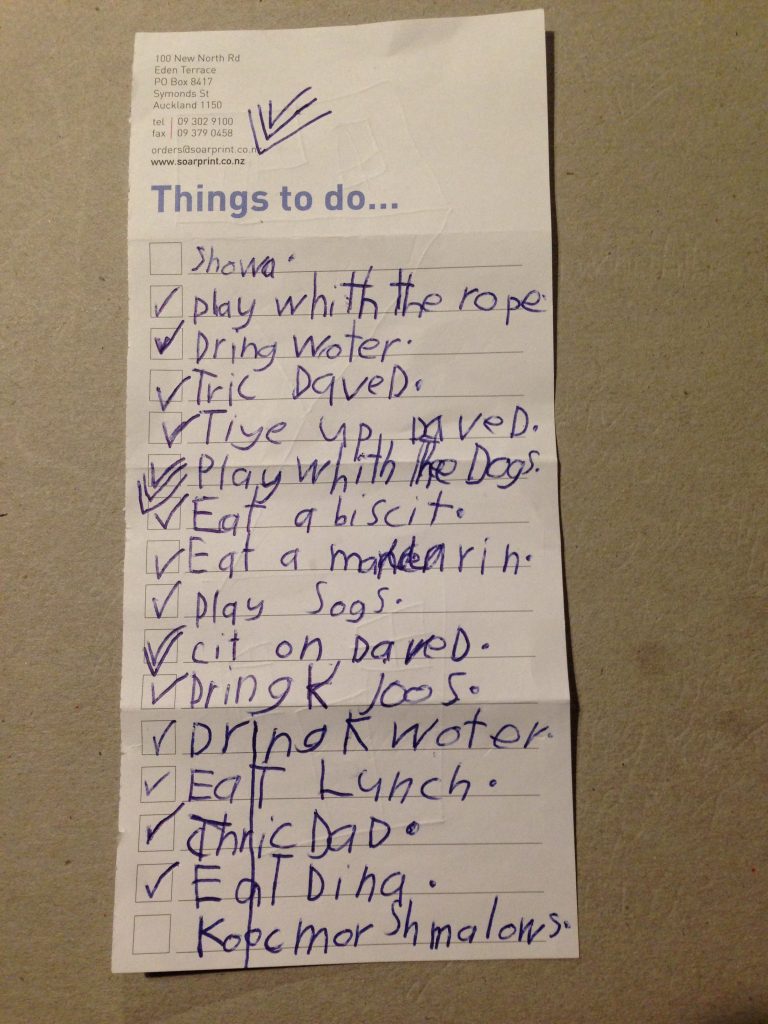 100 New North Rd
Eden Terrace
PO Box 8417
Symonds St
Auckland 1150
tel 09 302 9100
fax 09 379 0458
orders@soarprint.co.nz
www.soarprint.co.nz
Things to do...
Showa.
play whith the rope.
Dring woter.
Tric DaveD.
Tiye up DaveD.
Play whith the Dogs.
Eat a biscit.
Eat a mandarin.
play Sogs.
cit on DaveD.
Dringk joos.
Dringk woter.
Eat Lunch.
Thric DaD.
Eat Dina.
Kooc morshmalows.